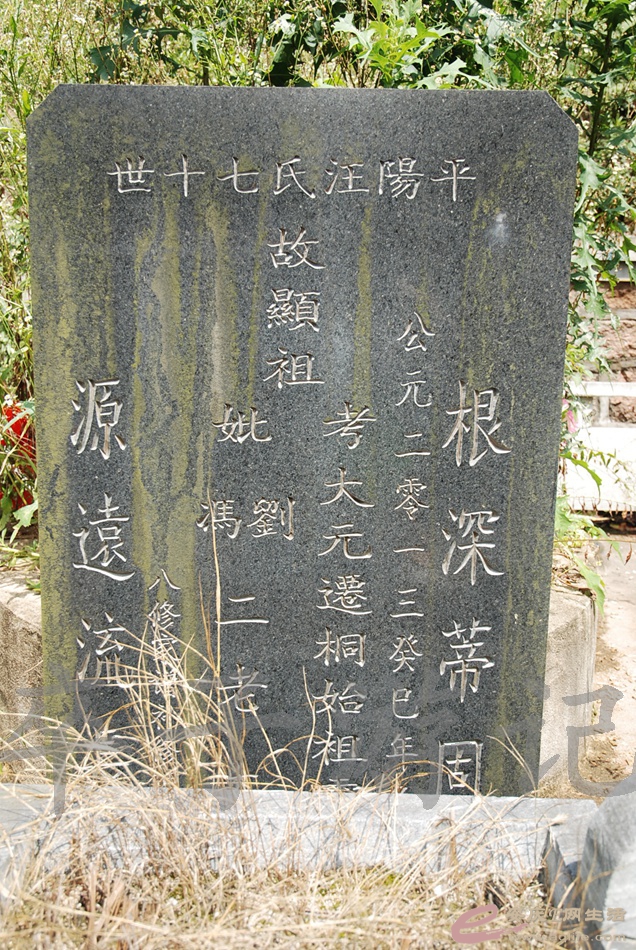 平陽汪氏七十世
根深蒂固
公元二零一三癸巳年
故顯祖
考大元遷桐始祖
妣劉馮二老
八修
源遠流